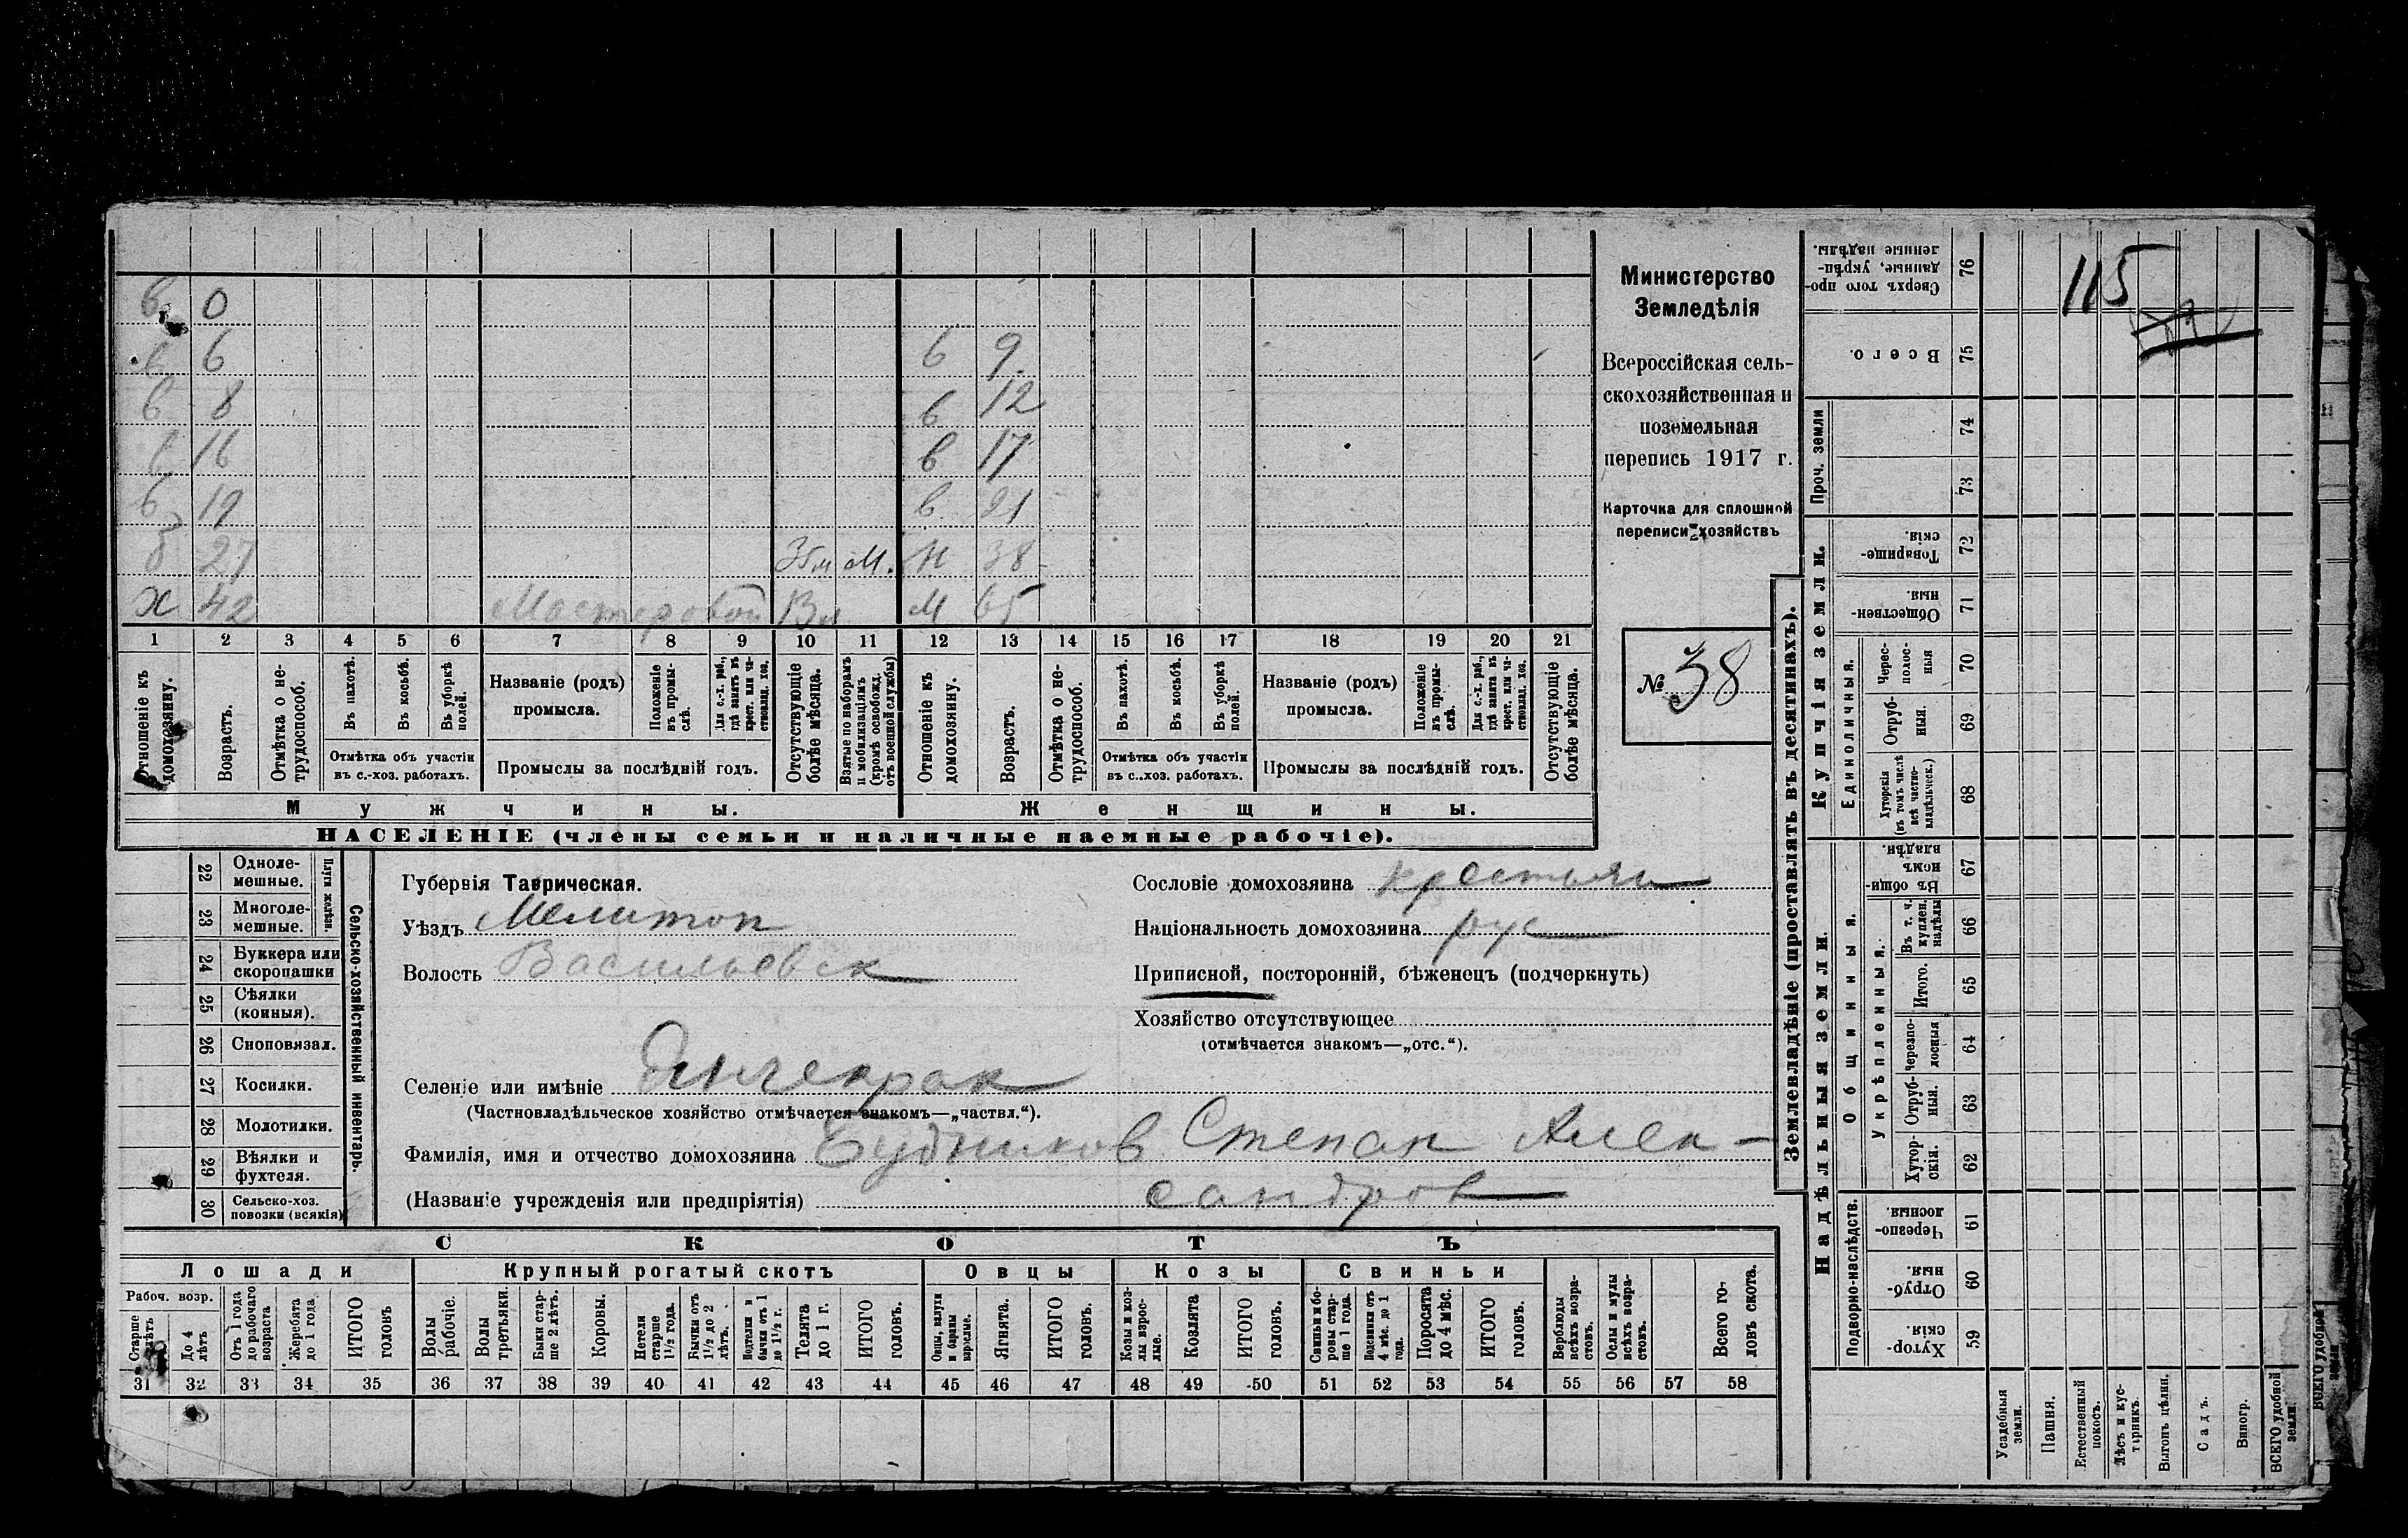 в 0
в 6 в 9
в 8 в 12
в 16 в 17
в 19 в 21
б 27 М. 38
х 42 Мастеровой М 65
1 2 3 4 5 6 7 8 9 10 11 12 13 14 15 16 17 18 19 20 21
Отношеніе къ домохозяину.
Возрастъ.
Отмѣтка о не-
трудоспособ.
Въ пахотѣ.
Въ косьбѣ.
Въ уборкѣ полей.
Отмѣтка объ участіи
въ с.-хоз. работахъ.
Названіе (родъ)
промысла.
Положеніе
въ промы-
слѣ.
Для с.-х. раб.,
гдѣ занятъ въ
крест. или ча-
стновлад. хоз.
Промыслы за послѣдній годъ.
Отсутствующіе
болѣе мѣсяца.
Взятые по наборамъ
и мобилизаціямъ
(кромѣ освобожд.
отъ военной службы)
Отношеніе къ
домохозяину.
Возрастъ.
Отмѣтка о не-
трудоспособ.
Въ пахотѣ.
Въ косьбѣ.
Въ уборкѣ
полей.
Отмѣтка объ участіи
въ с..хоз. работахъ.
Названіе (родъ)
промысла.
Положеніе
въ промы-
слѣ.
Для с.-х. раб.,
гдѣ занята въ
крест. или ча-
стновлад. хоз.
Промыслы за послѣдній годъ.
Отсутствующіе
болѣе мѣсяца.
Мужчины.
Женщины.
НАСЕЛЕНІЕ (члены семьи и наличные наемные рабочіе).
Министерство
Земледѣлія
Всероссійская сель-
скохозяйственная и
поземельная
перепись 1917 г.
Карточка для сплошной
переписи хозяйствъ
№ 38
22 Одноле-
мешные.
23 Многоле-
мешные.
Плуги желѣзн.
24 Буккера или
скоропашки
25 Сѣялки
(конныя).
26 Сноповязал.
27 Косилки.
28 Молотилки.
29 Вѣялки и
фухтеля.
30 Сельско-хоз.
повозки (всякія)
Сельско-хозяйственный инвентарь.
Губернія Таврическая.
Уѣздъ Мелитоп
Волость Васильевск
Селеніе или имѣніе Янчекрак
(Частновладѣльческое хозяйство отмѣчается знакомъ—„частвл.“).
Фамилія, имя и отчество домохозяина Будников Степан Алек-
(Названіе учрежденія или предпріятія) сандров
Сословіе домохозяина крестьян
Національность домохозяина рус
Приписной, посторонній, бѣженецъ (подчеркнуть)
Хозяйство отсутствующее
(отмѣчается знакомъ—„отс.“).
СКОТЪ
Лошади
Крупный рогатый скотъ
Овцы
Козы
Свиньи
Рабоч. возр.
Старше
4 лѣтъ
До 4
лѣтъ
Отъ 1 года
до рабочаго
возраста
Жеребята
до 1 года
ИТОГО
головъ
Волы
рабочіе.
Волы
третьяки.
Быки стар-
ше 2 лѣтъ.
Коровы.
Нетели
старше
1½ года.
Бычки отъ
1½ до 2
лѣтъ.
Подтелки и
бычки отъ 1
до 1½ г.
Телята
до 1 г.
ИТОГО
головъ.
Овцы, валухи
и бараны
взрослые.
Ягнята.
ИТОГО
головъ.
Козы и коз-
лы взрос-
лые.
Козлята
ИТОГО
головъ.
Свиньи и бо-
ровы стар-
ше 1 года.
Подсвинки отъ
4 мѣс. до 1
года.
Поросята
до 4 мѣс.
ИТОГО
головъ.
Верблюды
всѣхъ возра-
стовъ.
Ослы и мулы
всѣхъ возра-
стовъ.
Всего го-
ловъ скота.
31 32 33 34 35 36 37 38 39 40 41 42 43 44 45 46 47 48 49 50 51 52 53 54 55 56 57 58
Землевладѣніе (проставлять въ десятинахъ).
Купчія земли.
Надѣльныя земли.
115
Сверхъ того про-
данные, укрѣп-
ленные надѣлы.
76
Всего.
75
Проч. земли
74
73
Товарище-
скія.
72
Обществен-
ныя.
71
Единоличныя.
Черес-
полос-
ныя
70
Отруб-
ныя.
69
Хуторскія
(въ томъ числѣ
всѣ частно-
владѣльческ.)
68
Общинныя.
Въ общи-
номъ
владѣн.
67
Укрѣпленныя.
Въ т. ч.
куплен.
надѣлы
66
Итого.
65
Черезпо-
лосныя
64
Отруб-
ныя.
63
Хутор-
скія.
62
Подворно-наслѣдств.
Черезпо-
лосныя.
61
Отруб-
ныя.
60
Хутор-
скія.
59
Усадебныя
земли.
Пашня.
Естественный
покосъ.
Лѣсъ и кус-
тарникъ.
Выгонъ цѣлин.
Садъ.
Виногр.
ВСЕГО удобной
земли.
ВСЕГО удобной